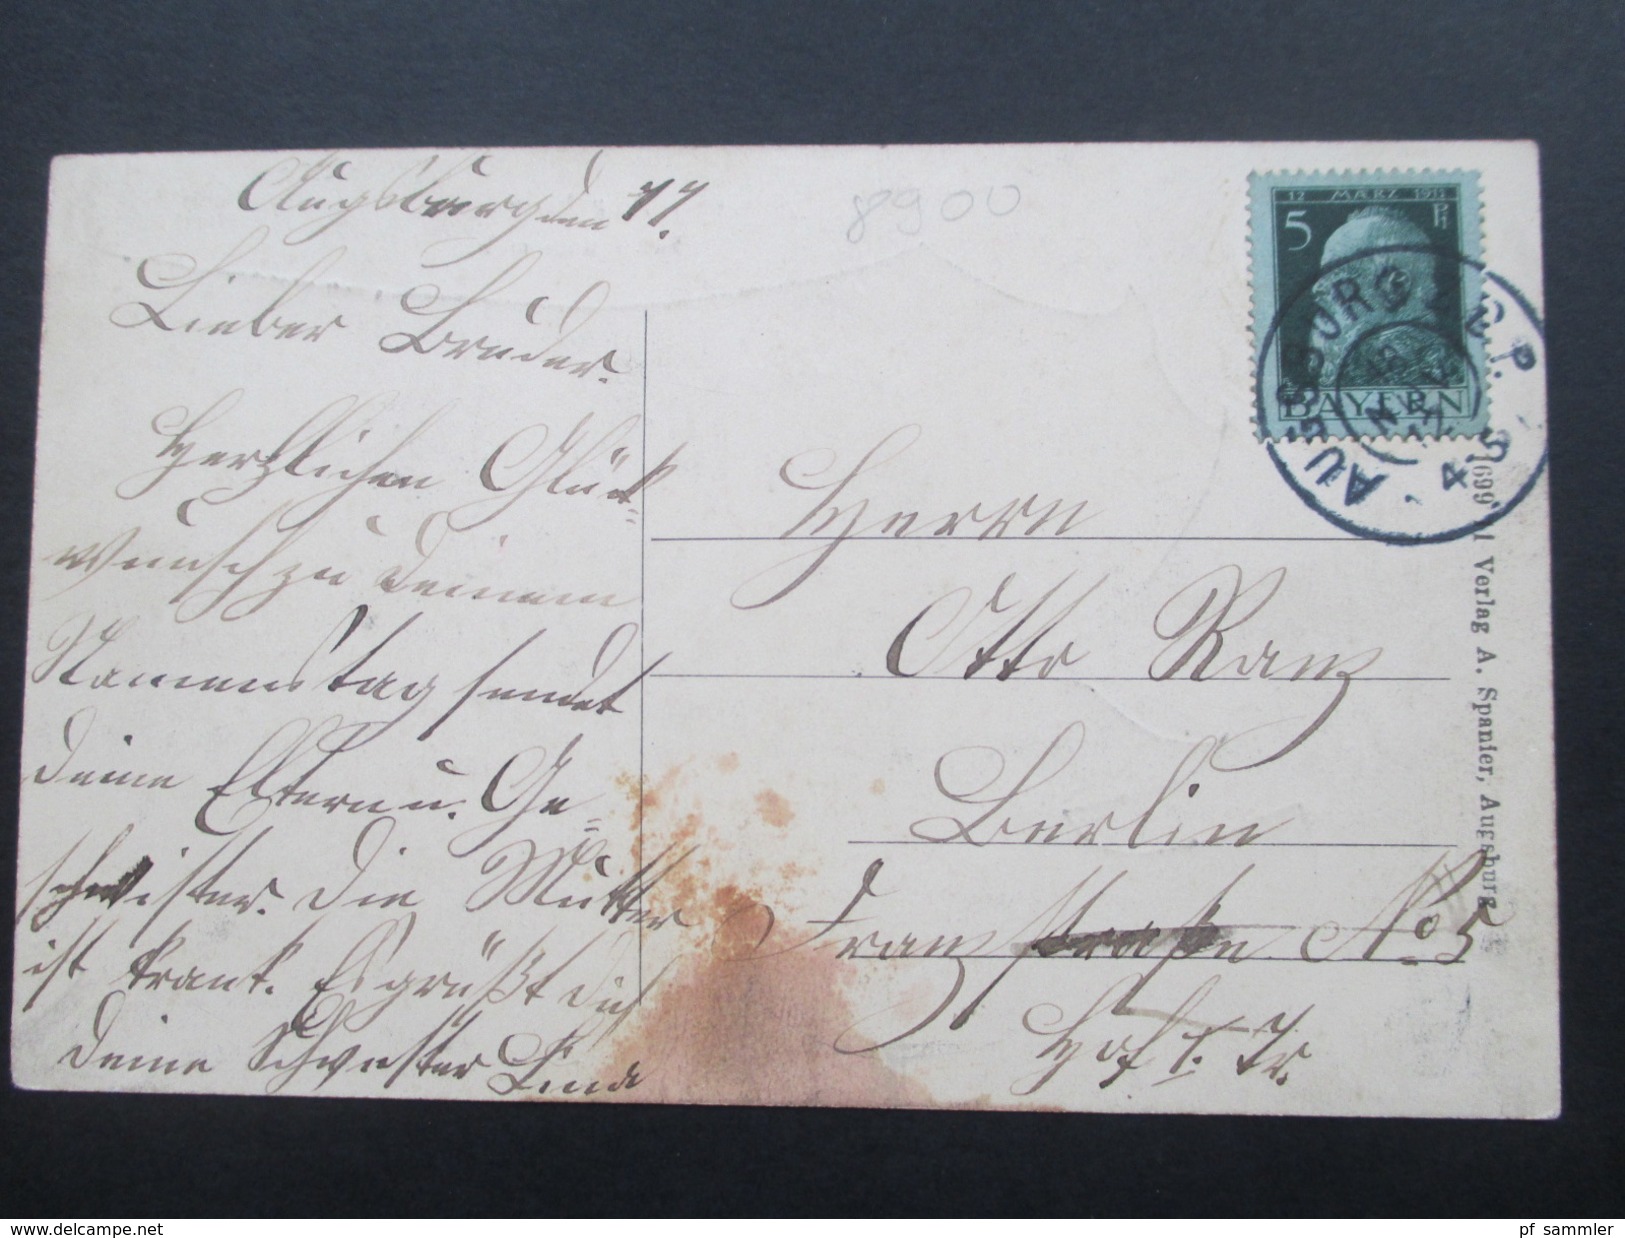 Augsburg den 11.
Lieber Bruder.
Herzlichen Glück-
wunsch zu Deinem
Namenstag sendet
Deine Eltern u. Ge-
schwister. Die Mutter
ist krank. Es grüßt Dich
Deine Schwester Lina
8900
12 MÄRZ 1911
5 Pf
BAYERN
AUGSBURG 2 B.P.
4-5
Herrn
Otto Ranz
Berlin
Franzstraße No 5
Hof I. Tr.
1699 Verlag A. Spanier, Augsburg
www.delcampe.net
pf_sammler